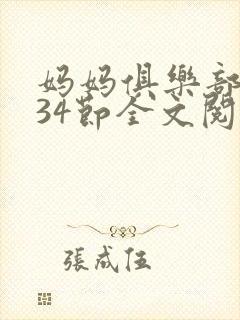 妈妈俱樂部
34節全文閱
張成伍